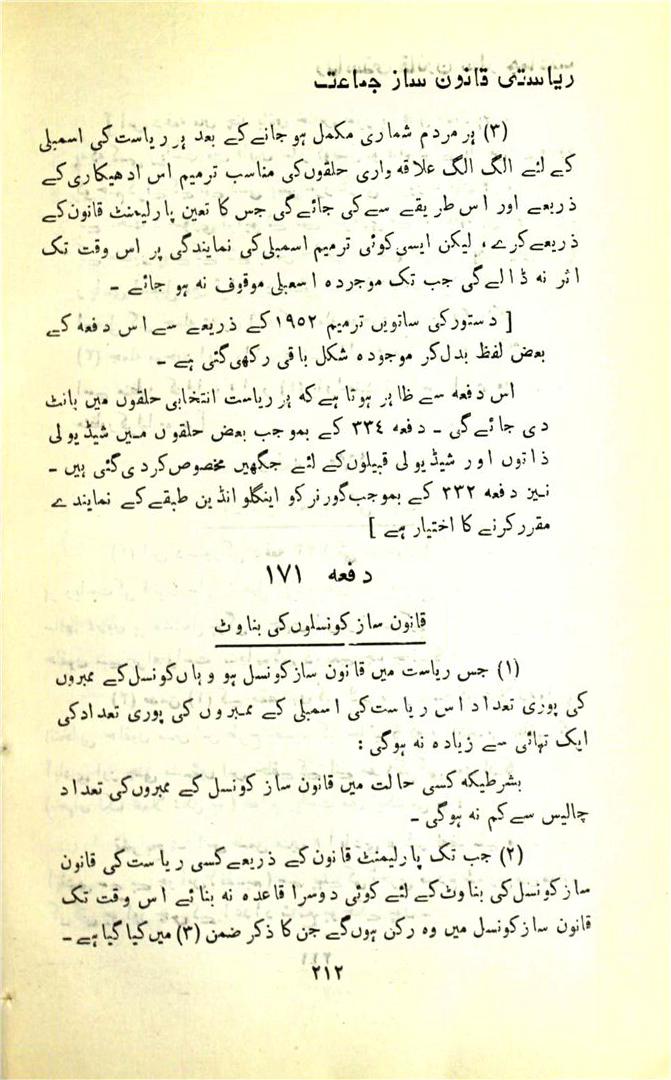 ریاستی قانون ساز جماعت
(۳) ہر مردم شماری مکمل ہو جانے کے بعد ہر ریاست کی اسمبلی
کے لئے الگ الگ علاقہ واری حلقوں کی مناسب ترمیم اس ادھیکاری کے
ذریعے اور اس طریقے سے کی جائے گی جس کا تعین پارلیمنٹ قانون کے
ذریعے کرے، لیکن ایسی کوئی ترمیم اسمبلی کی نمایندگی پر اس وقت تک
اثر نہ ڈالے گی جب تک موجردہ اسعبلی موقوف نہ ہو جائے ۔
[ دستور کی ساتویں ترمیم ۱۹۵۲ کے ذریعے سے اس دفعہ کے
بعض لفظ بدل کر موجودہ شکل باقی رکھی گئی ہے ۔
اس دفعہ سے ظاہر ہوتا ہے کہ ہر ریاست انتخابی حلقوں میں بانٹ
دی جائے گی ۔ دفعہ ۳۳۴ کے بموجب بعض حلقوں میں شیڈیولی
ذاتوں اور شیڈیولی قبیلوں کے لئے جگھیں مخصوص کر دی گئی ہیں ۔
نیز دفعہ ۲۳۲ کے بموجب گورنر کو اینگلو انڈین طبقے کے نمایندے
مقرر کرنے کا اختیار ہے ]
دفعہ ۱۷۱
قانون ساز کونسلوں کی بناوٹ
(۱) جس ریاست میں قانون ساز کونسل ہو وہاں کونسل کے ممبروں
کی پوری تعداد اس ریاست کی اسمبلی کے ممبروں کی پوری تعداد کی
ایک تہائی سے زیادہ نہ ہوگی :
بشرطیکہ کسی حالت میں قانون ساز کونسل کے ممبروں کی تعداد
چالیس سے کم نہ ہوگی ۔
(۲) جب تک پارلیمنٹ قانون کے ذریعے کسی ریاست کی قانون
ساز کونسل کی بناوٹ کے لئے کوئی دوسرا قاعدہ نہ بنائے اس وقت تک
قانون ساز کونسل میں وہ رکن ہوں گے جن کا ذکر ضمن (۳) میں کیا گیا ہے ۔
۲۱۲